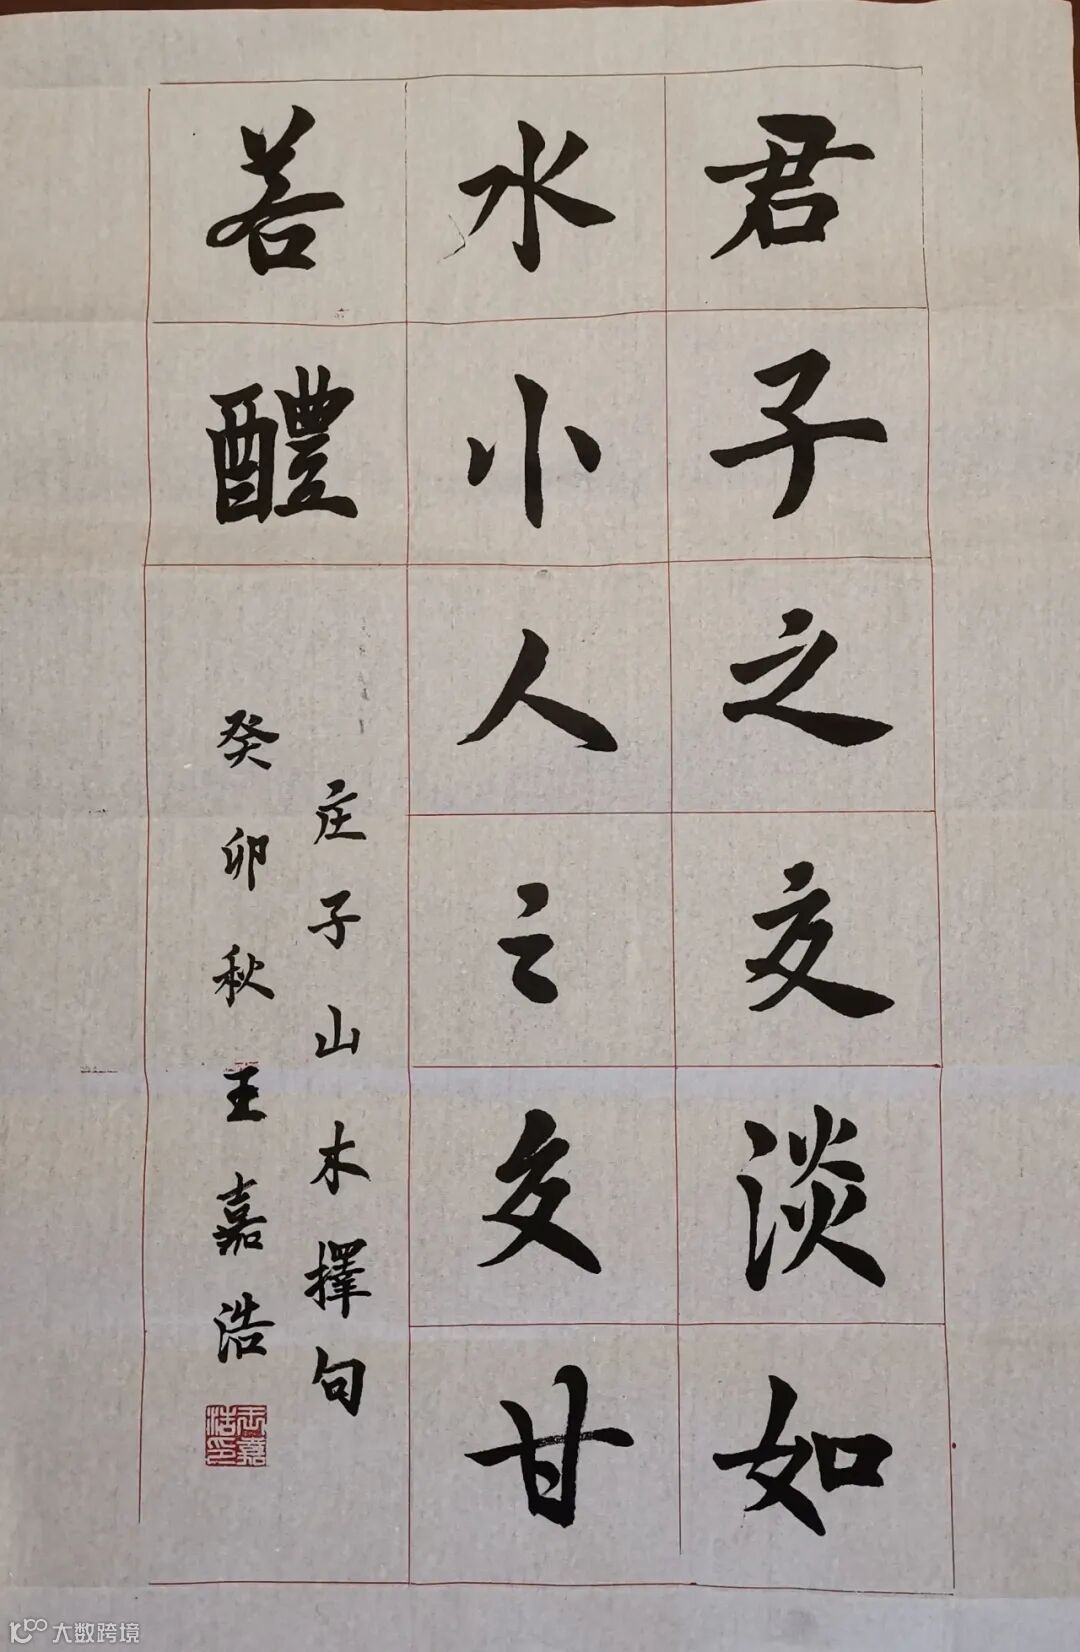 君子之交淡如
水小人之交甘
若醴
庄子山木擇句
癸卯秋王嘉浩
王嘉浩印
大数跨境